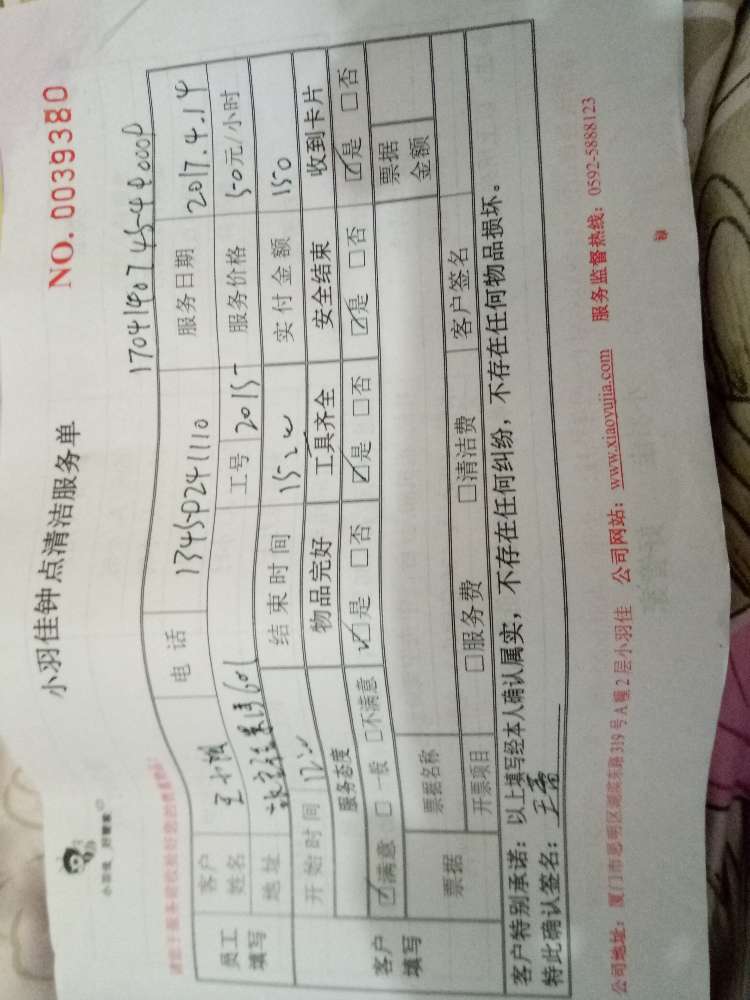 小羽佳 好管家
小羽佳钟点清洁服务单
NO. 0039380
员工填写
客户姓名
电话 13450241110
服务日期 2017.4.14
地址
工号 2015-
服务价格 50元/小时
开始时间
结束时间
实付金额 150
客户填写
服务态度 物品完好 工具齐全 安全结束 收到卡片
☑满意 □一般 □不满意 ☑是 □否 ☑是 □否 ☑是 □否 ☑是 □否
票据 票据名称 票据金额
开票项目 □服务费 □清洁费 客户签名
客户特别承诺：以上填写经本人确认属实，不存在任何纠纷，不存在任何物品损坏。
特此确认签名：
公司地址：厦门市思明区湖滨东路319号A幢2层小羽佳 公司网站：www.xiaoyujia.com 服务监督热线：0592-5888123